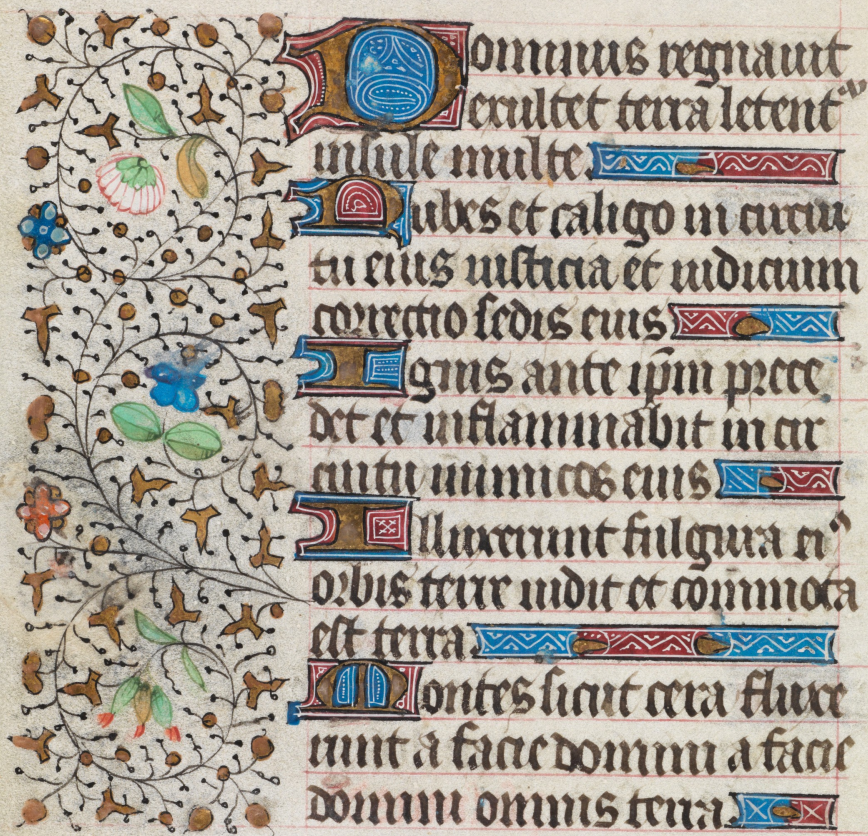 Dominus regnauit
exultet terra letent᷑
insule multe
Nubes et caligo in circui
tu eius iusticia et iudicium
correctio sedis eius
Ignis ante ip̄m prece
det et inflammabit in cir
cuitu inimicos eius
Illuxerunt fulgura ei⁹
orbis terre uidit et commota
est terra
Montes sicut cera fluxe
runt a facie domini a facie
domini omnis terra